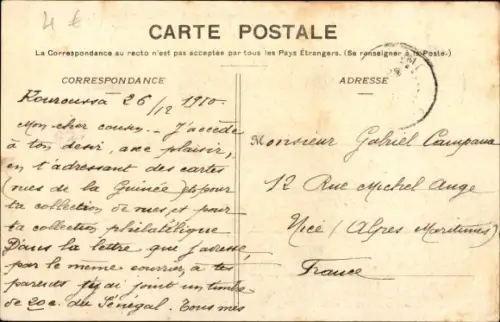 4 €
CARTE POSTALE
La Correspondance au recto n'est pas acceptée par tous les Pays Étrangers. (Se renseigner à la Poste.)
CORRESPONDANCE
Kouroussa 26/12 1910.
Mon cher cousin.. J'accède
à ton desir, avec plaisir,
en t'adressant des cartes
(vues de la Guinée) pour
ta collection de vues, et pour
ta collection philatélique
Dans la lettre que j'adresse,
par le meme courrier, à tes
parents j'ai joint un timbre
de 20c. du Sénégal. Tous mes
ADRESSE
Monsieur Gabriel Campana
12 Rue Michel Ange
Nice (Alpes Maritimes)
France